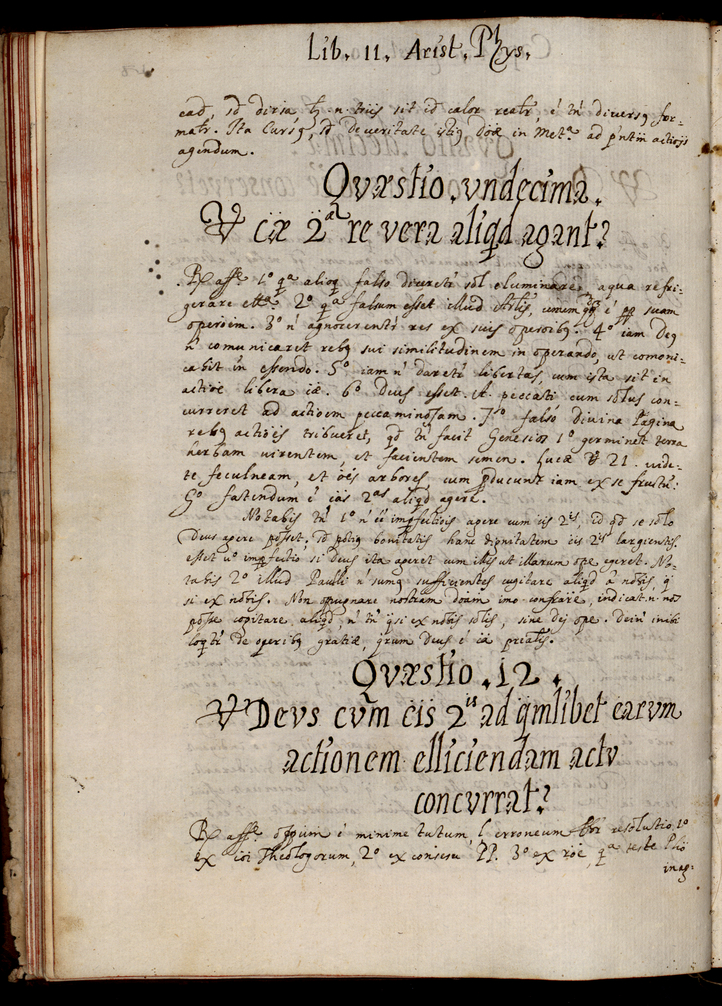 Lib. II. Arist. Phys.
ead, sd diria, tz n. triis sit id calor reatr, é tń diversq for-
matr. Ita Cursq, sd de veritate istiq Doæ in Met.ª ad pntm actiois
agendum.
Qvæstio . vndecima .
V cæ 2æ re vera aliqd agant?
R. affe. 1º qª alioq falso diceretr sol eluminare, aqua refri-
gerare ettª. 2º qª falsum esset illud Artlis, unum é pp suam
operoem. 3º ń agnoscerentr res ex suis operoibq. 4º iam Deq
ń comunicaret rebq sui similitudinem in operando, ut comoni-
cabit in essendo. 5º iam ń daretr libertas, cum ista sit in
actioe libera iæ. 6º Deus esset A. peccati cum solus con-
curreret ad actioem peccaminosam. 7º falso Divina Pagina
rebq actioēs tribueret, qd tń facit Genesios 1º germinet terra
herbam virentem, et facientem semen. Lucæ 21. vide-
te feculneam, et oēs arbores, cum pducunt iam ex se fructū:
Gº fatendum é cās 2as aliqd agere.
Notabis tń 1º ń éé impfectiois agere cum cis 2is, id qd se solo
Deus agere posset; sd potiq bonitatis hanc dignitatem cis 2is largientis.
esset vº impfectio si Deus ita ageret cum illis ut illarum ope egeret. No-
tabis 2º illud Paulli ń sumq sufficientes cogitare aliqd a nobis, q
si ex nobis. Non opugnare nostram doām imo confirāre, indicat .n. nos
posse cogitare, aliqd, ń tń qsi ex nobis solis, sine dej ope. Dein inibi
loqtr de operibq gratiæ, qrum Deus é cā prealis.
Qvæstio . 12 .
Vr Devs cvm cis 2is ad qmlibet earvm
actionem elliciendam actv
concvrrat?
R. affe. oppum é minime tutum, l erroneum resolutio 1º
ex coi Theologorum, 2º ex consesu PP. 3º ex roe, qª teste
inag-